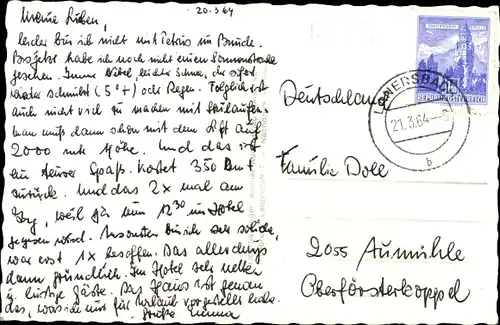 20.3.64
Meine Lieben,
leider bin ich nicht mit Petrus im Bunde.
Bis jetzt habe ich noch nicht einen Sonnenstrahl
gesehen. Immer Nebel, leichter Schnee, der sofort
wieder schmilzt (5°+) oder Regen. Folglich ist
auch nicht viel zu machen mit Skilaufen.
Man muß dann schon mit dem Lift auf
2000 mtr Höhe. Und das ist
ein teurer Spaß. Kostet 350
zurück. Und das 2x mal am
Tag, weil für um 12 30 im Hotel
gegessen wird. Ansonsten bin ich sehr solide,
war erst 1x besoffen. Das allerdings
dann gründlich. Im Hotel sehr nette
u. lustige Gäste. Das Haus ist genau
das, was ich mir für Urlaub vorgestellt habe.
Grüße
REPUBLIK ÖSTERREICH
LANERSBACH
21.3.64
b
Deutschland
Familie Doll
2055 Aumühle
Oberförsterkoppel